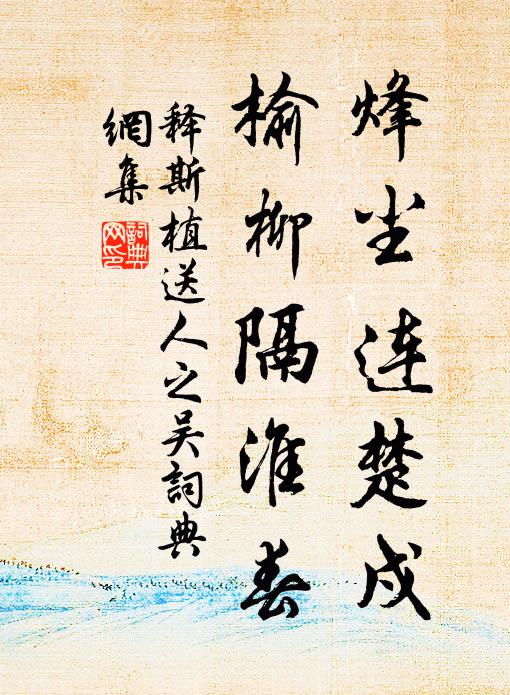 烽尘连楚戍
榆柳隔淮春
释斯植送人之吴词典
网集
词典网印